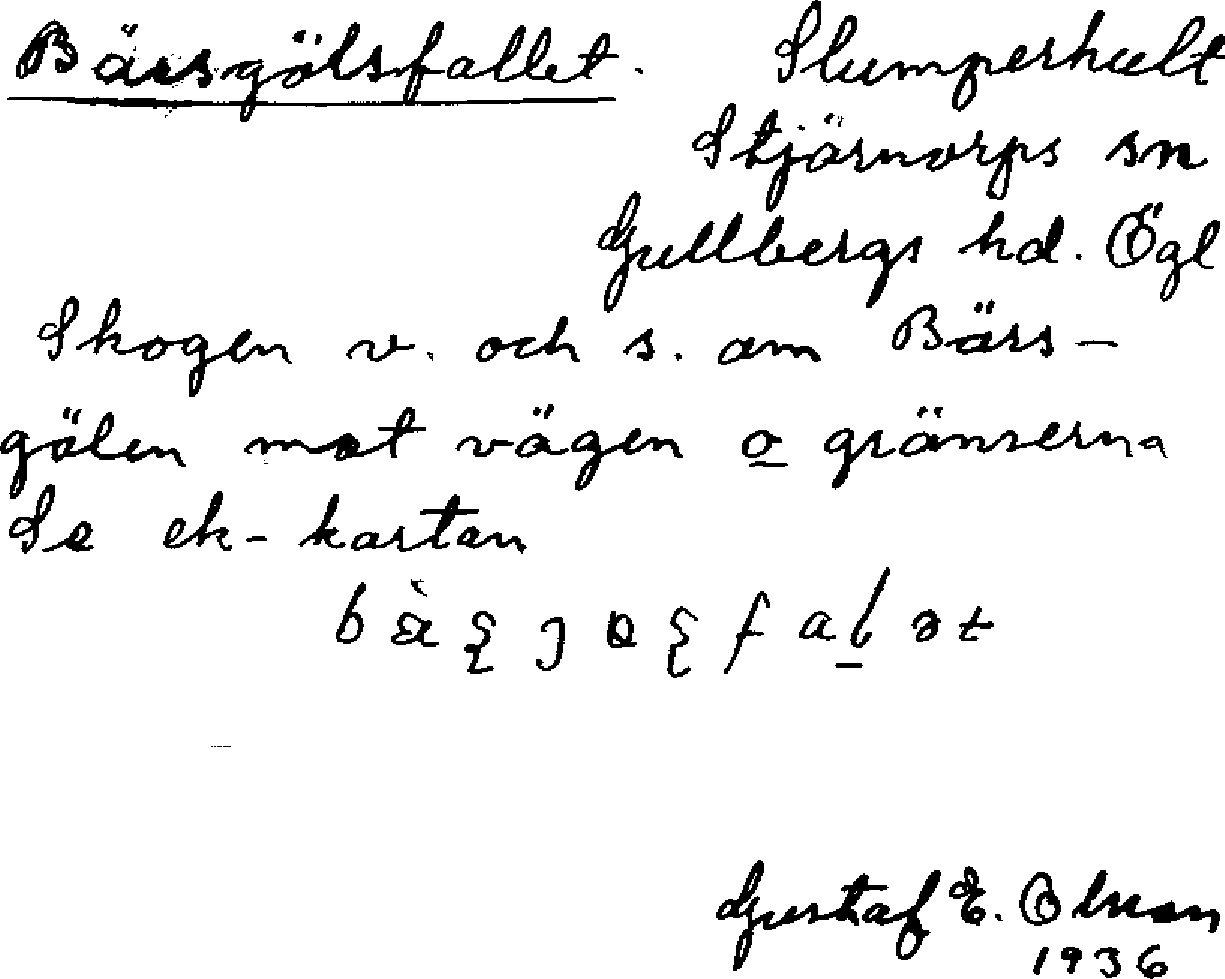 Bärsgölsfallet. Slumperhult
Stjärnorps sn
Gullbergs hd. Ögl
Skogen v. och s. om Bärs-
gölen mot vägen o gränserna
Se ek-kartan
Gustaf E. Olsson
1936